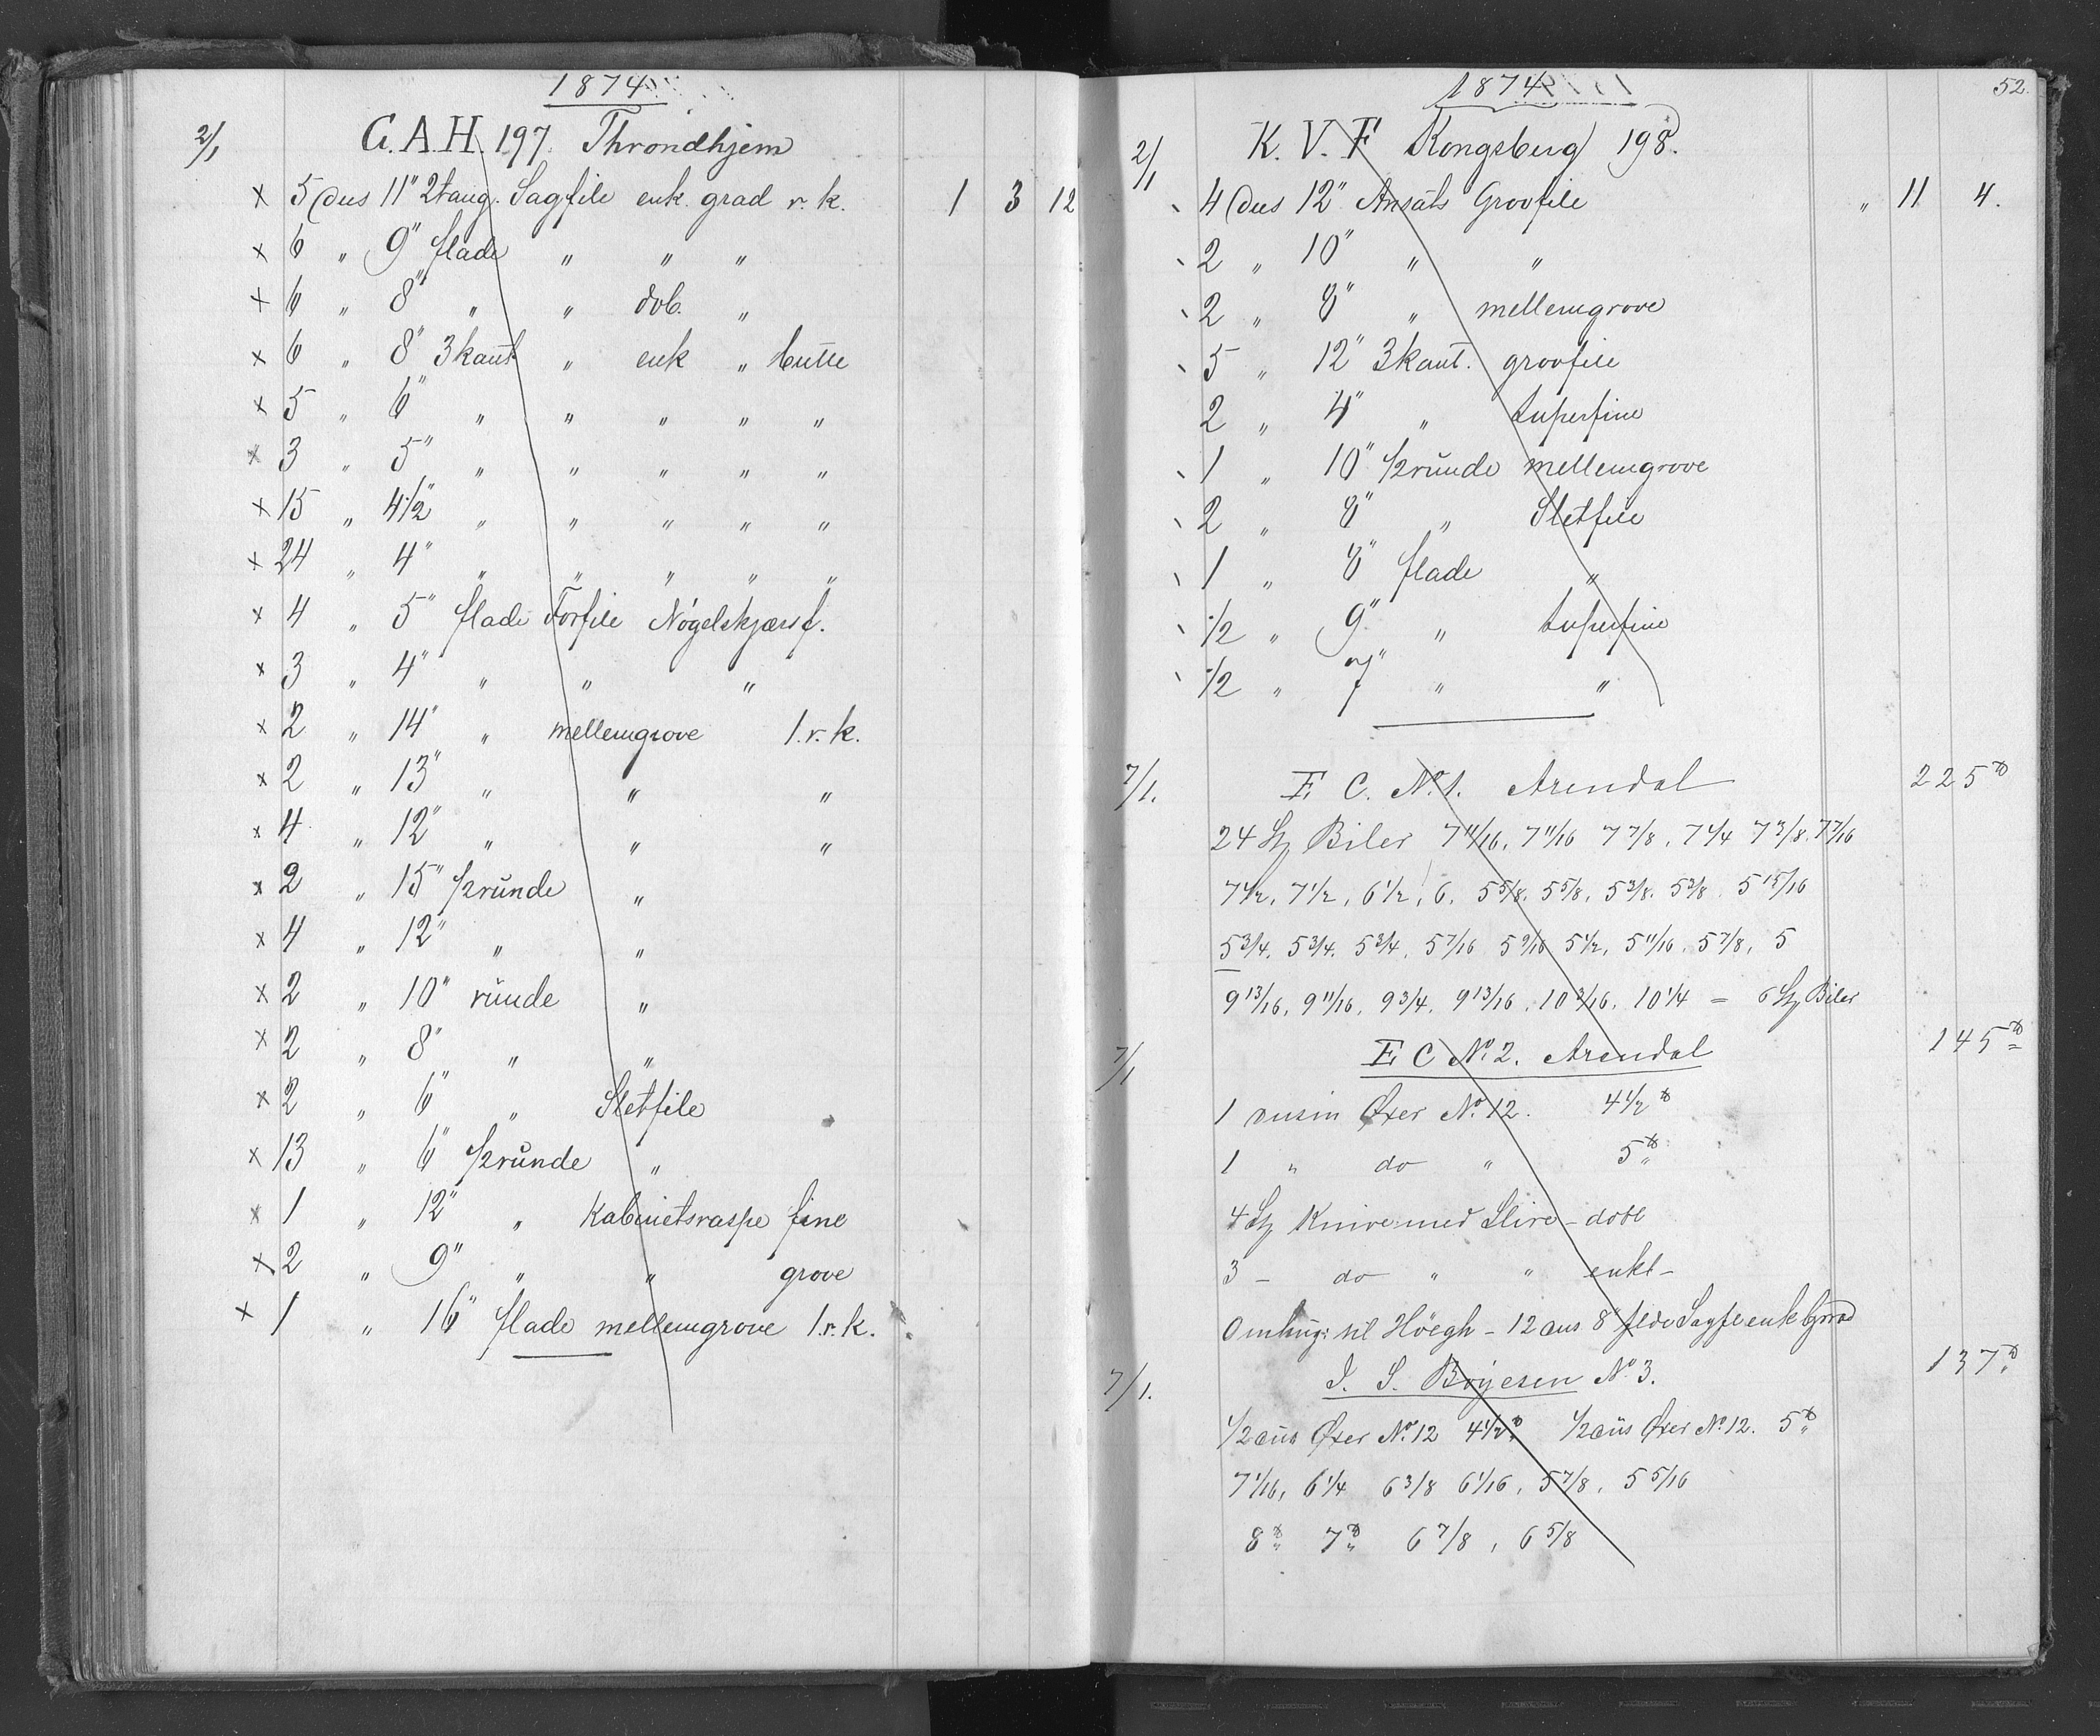 1874
2/1 G.A.H. 197. Throndhjem
x 5 dus 11" 2tang. Sagfile enk. grad r. k. 1 3 12
x 6 " 9" flade " " "
x 6 " 8" " " dob. "
x 6 " 8" 3kant " enk " butte
x 5 " 6" " " " " "
x 3 " 5" " " " " "
x 15 " 4 1/2" " " " " "
x 24 " 4" " " " " "
x 4 " 5" flade Forfile Nøgelskjærsf.
x 3 " 4" " " "
x 2 " 14" " mellemgrove 1. r. k.
x 2 " 13" " " "
x 4 " 12" " " "
x 2 " 15" 1/2runde "
x 4 " 12" " "
x 2 " 10" runde "
x 2 " 8" " "
x 2 " 6" " Sletfile
x 13 " 6" 1/2runde "
x 1 " 12" " Kabinetsraspe fine
x 2 " 9" " " grove
x 1 " 16" flade mellemgrove 1. r. k.
1874 52.
2/1 K. V. F Kongsberg 198.
4 dus 12" Ansats Groofile " 11 4.
2 " 10" " "
2 " 8" " mellemgrove
5 " 12" 3kant. groofile
2 " 4" " superfine
1 " 10" 1/2runde mellemgrove
2 " 8" " Sletfile
1 " 8" flade "
1/2 " 9" " superfine
1/2 " 7" " "
7/1. E C. No. 1. Arendal 225 ℔
24 St Biler 7 11/16, 7 11/16 7 7/8, 7 1/4 7 3/8, 7 7/16
7 1/2, 7 1/2, 6 1/2, 6, 5 5/8, 5 5/8, 5 3/8, 5 3/8, 5 15/16
5 3/4, 5 3/4, 5 3/4, 5 7/16 5 9/16 5 1/2, 5 11/16, 5 7/8, 5
9 13/16, 9 11/16, 9 3/4, 9 13/16, 10 3/16, 10 1/4 = 6 St Biler
7/1 E C No. 2. Arendal 145 ℔
1 dusin Øxer No. 12. 4 1/2 ℔
1 " do " 5 ℔
4 St Knive med Slire - dobl
3 - do " " enkt -
til Høegh - 12 dus 8"
7/1. I. S. Boÿesen No 3. 137 ℔
1/2 dus Øxer No. 12 4 1/2 ℔ 1/2 dus Øxer No. 12. 5 ℔
7 1/16, 6 1/4 6 3/8 6 1/16, 5 7/8, 5 5/16
8 ℔ 7 ℔ 6 7/8, 6 5/8